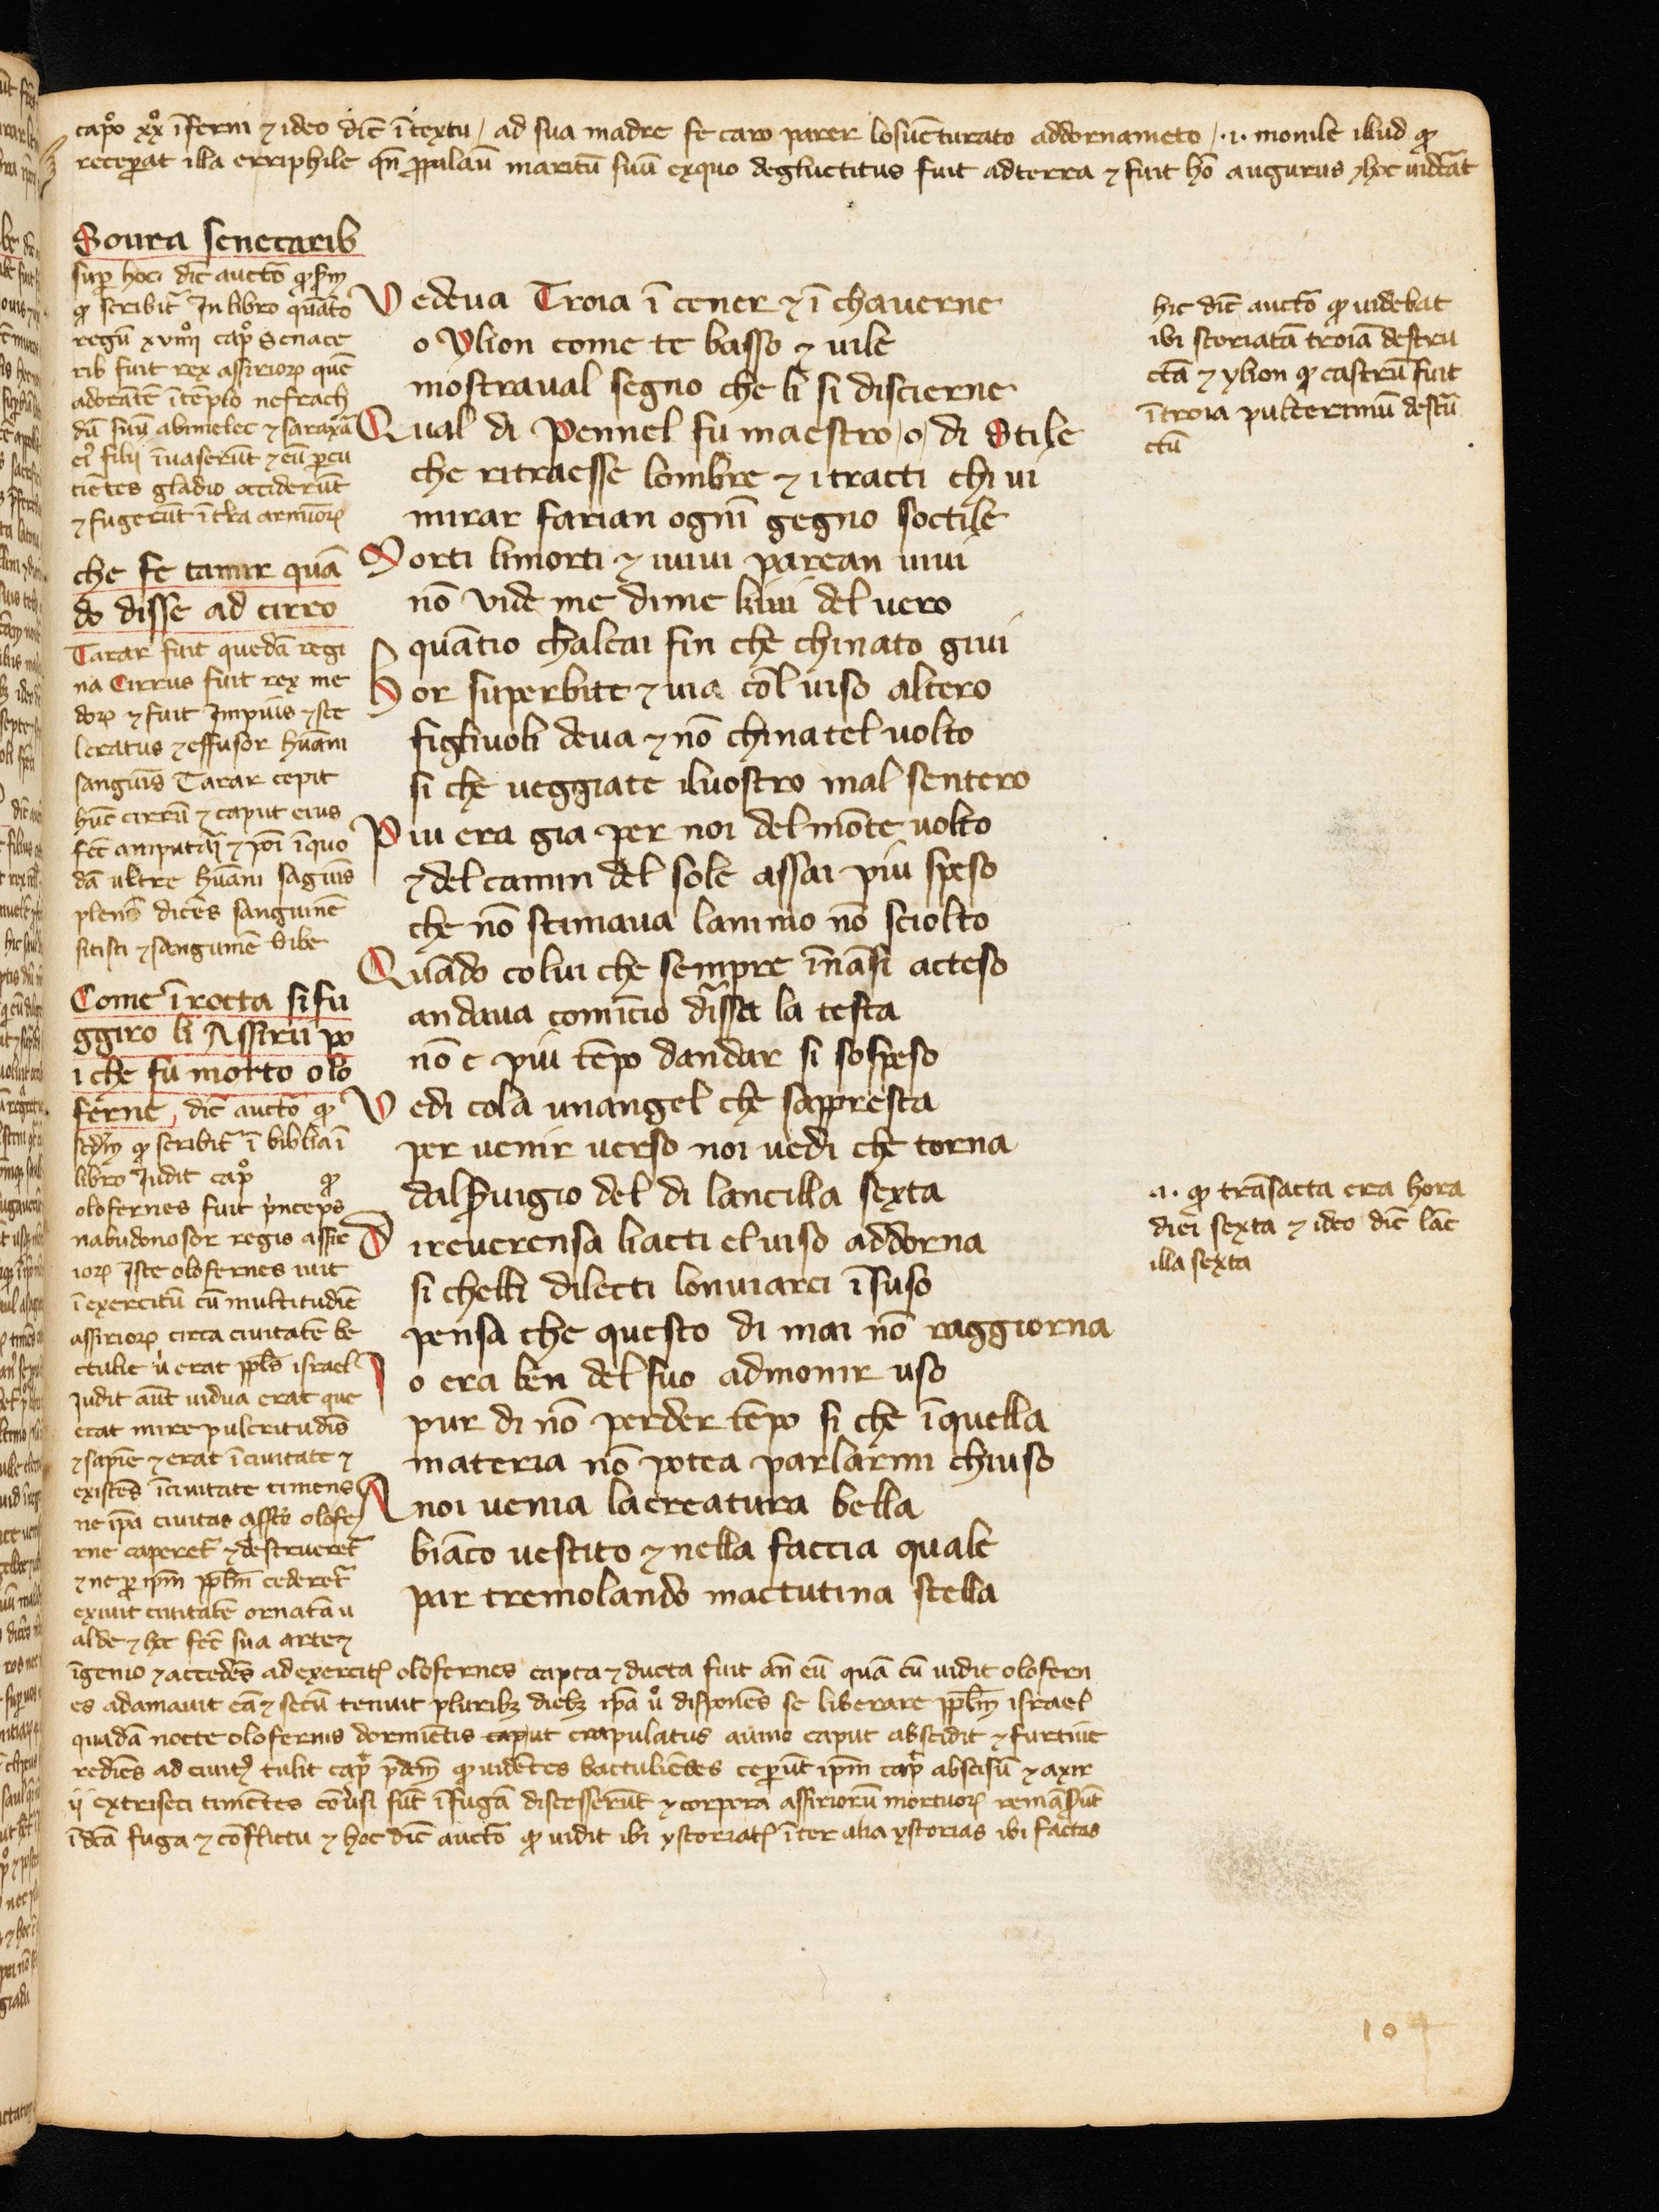 capͦo xxͦ ī́ferni ⁊ ideo dic̄ ī textu / ad sua madre fe caro parer losuēturato addornameto / .i. monile illud qͥ
receperat illa erriphile qn̄ ꝓpalauit maritū suū exquo degluctitus fuit adterra ⁊ fuit hō augurus ⁊ hoc
Soura senecarib
sup hoc dic̄ auctō
qͥ scribit̄ In libro quāto
regū xviiij capͦ Senace
rib fuit rex assirioꝝ quē
adorātē ītēplo nefrach
dū suū abimelec ⁊ saraxā
eiꝰ filij īuaserūt ⁊ eū ꝑcu
tiētes gladio occiderūt
⁊ fugerūt ī tr̄a armīoꝝ
che fe tamir quā
do disse ad cirro
Tarar fuit quedā regi
na Cirrus fuit rex me
doꝝ ⁊ fuit Impius ⁊ sce
leratus ⁊ effusor hūani
sanguīs Tarar cepit
hūc cirrū ⁊ caput eius
fec̄ amputari ⁊ poī īquo
dā ultre hūani sāguīs
plenō dicēs sanguinē
sitisti ⁊ sanguinē bibe
Come ī rocta si fu
ggiro li Assirii po
i che fu morto olo
ferne, dic̄ auctō qͥ
scdm qͥ scribit̄ ī biblia ī
libro Judit capͦ qͥ
olofernes fuit pͥnceps
nabudonosor regis assir
ioꝝ Iste olofernes iuit
ī exercitū cū multitudīe
assirioꝝ circa ciuitatē be
ctulie ù erat ppl̄s israel
Judit aūt uidua erat que
erat mire pulcritudīs
⁊ sapīe ⁊ erat ī ciuitate ⁊
existēs īciuitate timens
ne ip̄a ciuitas olofe
rne caperet̄ ⁊ destrueret̄
⁊ ne ꝑ ip̄m ppl̄m cederet̄
exiuit ciuitatē ornata u
alde ⁊ hoc fec̄ sua arte ⁊
īgenio ⁊ accedēs ad exercitū olofernes capta ⁊ ducta fuit an̄ eū quā cū uidit olofern
es adamauit eā ⁊ secū tenuit pluribꝫ diebꝫ ip̄a ùͦ disponēs se liberare ppl̄m israel
quadā nocte olofernis dormiētis caput crapulatus caput abscidit ⁊ furtiue
rediēs ad ciuit̄ tulit cap̄ p̄dcm qͥ uidētes bactuliēses ceperūt ip̄m cap̄ abscisū ⁊ axir
ij extrīseci timētes cōuersi sūt ī fugā discesserūt ⁊ corpera assiriorū mortuoꝝ remāserūt
ī dcā fuga ⁊ cōflictu ⁊ hoc dic̄ auctō qͥ uidit ibi ystoriat̄ īter alia ystorias ibi factas
Vedeua Troia ī cener ⁊ ī chauerne
o Ylion come te basso ⁊ uile
mostraual segno che li si discierne
Qual di Pennel fu maestro, o, di Stile
che ritraesse lombre ⁊ i tracti chi ui
mirar farian ogni īgegno soctile
Morti limorti ⁊ iuiui parean uiui
nō vide me di me kiui del uero
quātio chalcai fin che chinato giui
Hor superbite ⁊ uia col uiso altero
figliuoli deua ⁊ nō chinatel uolto
si che ueggiate iluostro mal sentero
Piu era gia per noi del mōte uolto
⁊ del camin del sole assai piu speso
che nō stimaua lanimo nō sciolto
Quādo colui che sempre īnāsi acteso
andaua comīcio drissa la testa
nō e piu tēpo dandar si sospeso
Vedi cola unangel che sappresta
per uenir uerso noi uedi che torna
dal seruigio del di lancilla sexta
Direuerensa liacti el uiso addorna
si chelli dilecti lonuiarci ī suso
pensa che questo di mai nō raggiorna
Io era ben del suo admonir uso
pur di nō perder tēpo si che īquella
materia nō potea parlarmi chiuso
A noi uenia lacreatura bella
biāco uestito ⁊ nella faccia quale
par tremolando mactutina stella
hic dic̄ auctō qͥ uidebat
ibi storiatā troiā destru
ctā ⁊ ylion qͥ castrū fuit
ītroia pulcerimū destru
ctū
.i. qͥ trāsacta era hora
diei sexta ⁊ ideo dic̄ lāc
illa sexta
104